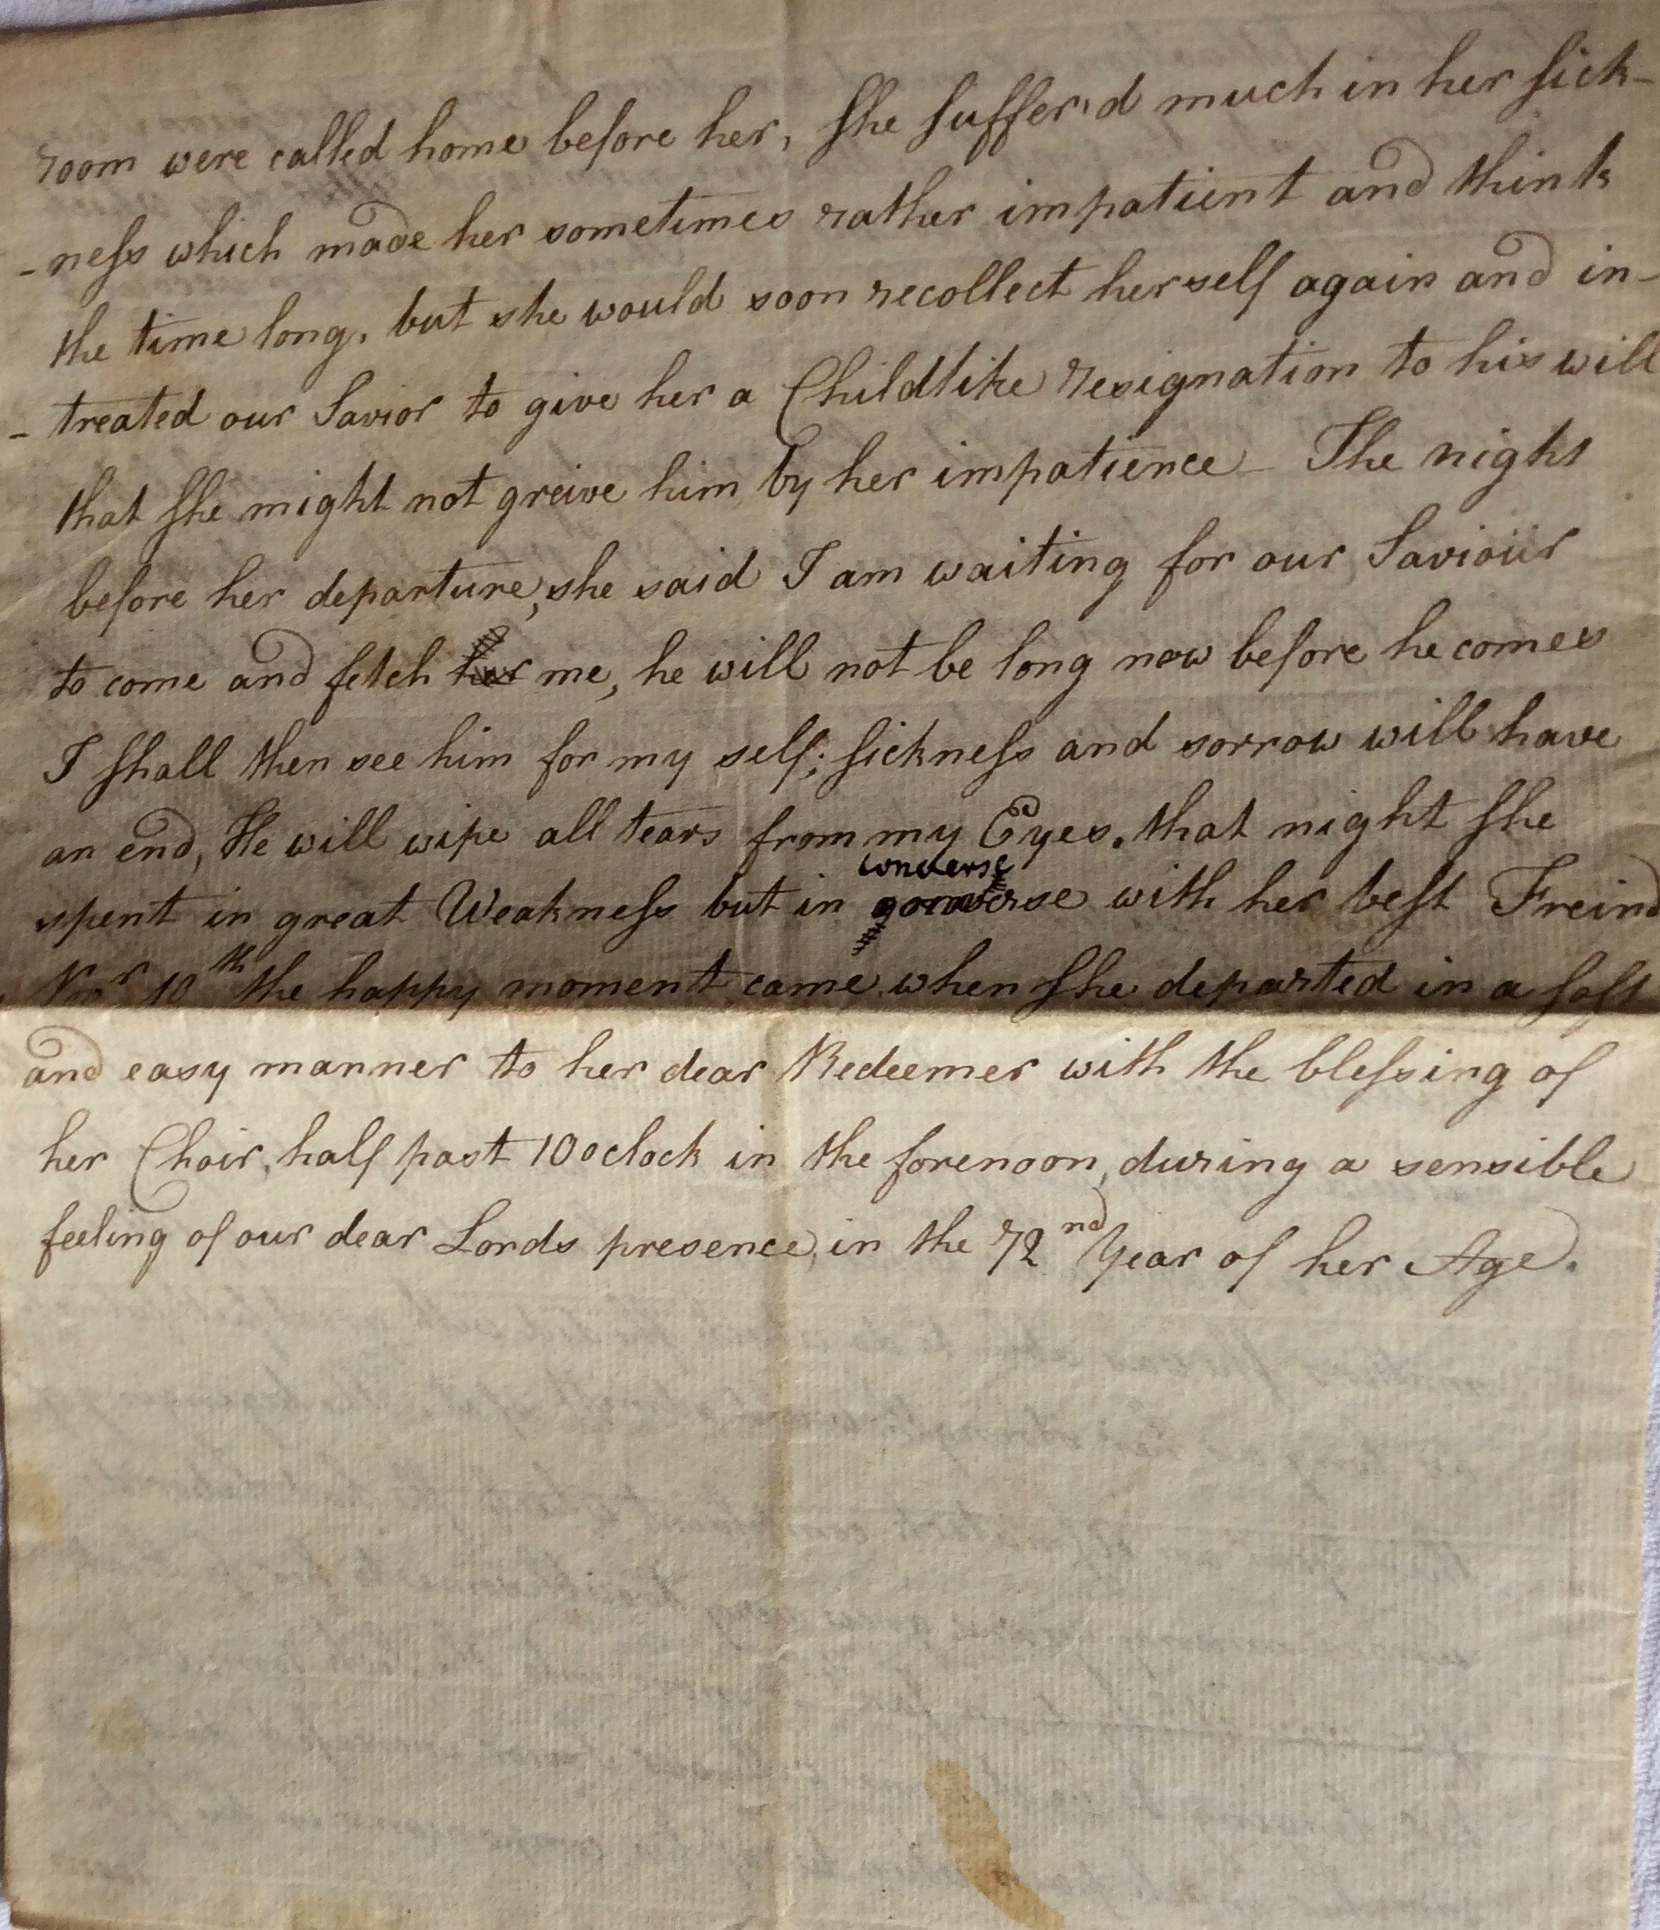 room were called home before her, she suffer'd much in her sick-
-ness which made her sometimes rather impatient and think
the time long, but she would soon recollect herself again and in-
-treated our Savior to give her a Childlike resignation to his will
that she might not greive him by her impatience - The night
before her departure, she said I am waiting for our Saviour
to come and fetch her me, he will not be long now before he comes
I shall then see him for my self; sickness and sorrow will have
an end, He will wipe all tears from my Eyes. that night she
converse
spent in great Weakness but in with her best Freind
10th the happy moment came when she departed in a soft
and easy manner to her dear Redeemer with the blessing of
her Choir, half past 10 oclock in the forenoon, during a sensible
feeling of our dear Lords presence, in the 72nd Year of her Age.